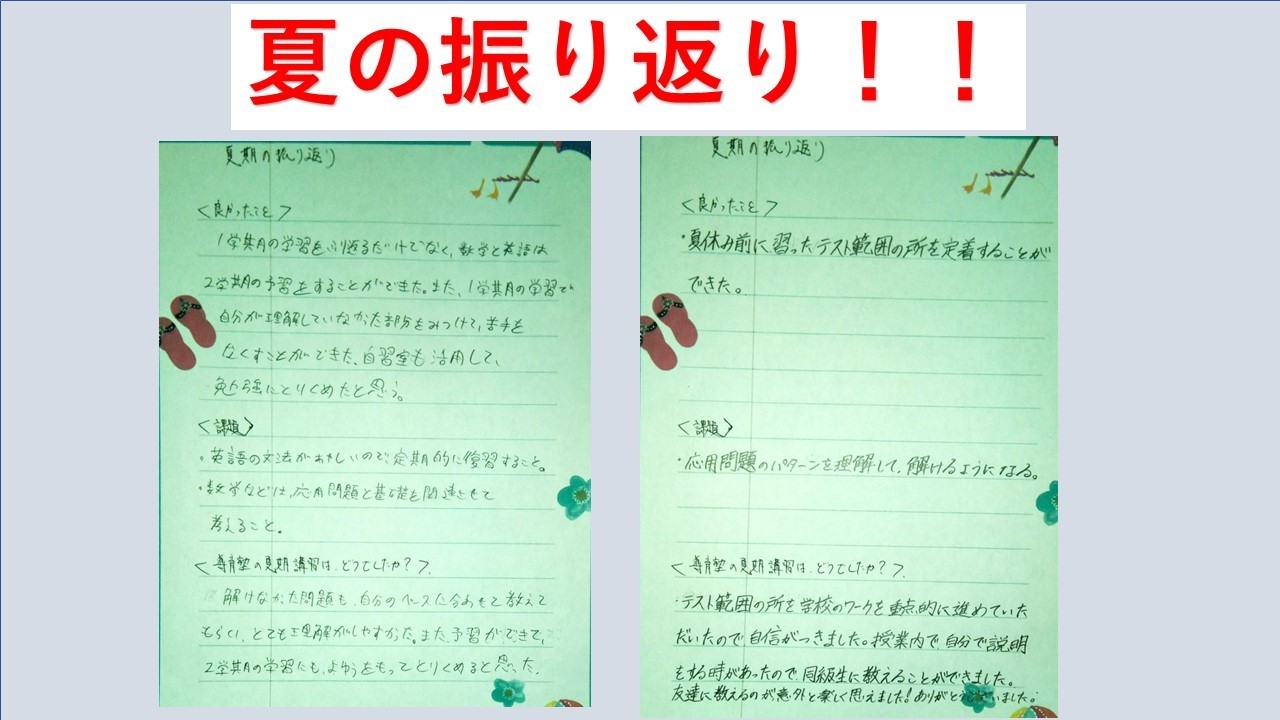 夏の振り返り！！
夏期の振り返り
<良かったこと>
1学期の学習をふり返るだけでなく、数学と英語は
2学期の予習をすることができた。また、1学期の学習で
自分が理解していなかった部分をみつけて、苦手を
なくすことができた。自習室も活用して、
勉強にとりくめたと思う。
<課題>
・英語の文法があやしいので、定期的に復習すること。
・数学などは、応用問題と基礎を関連させて
考えること。
<尊育塾の夏期講習は、どうでしたか？>
解けなかった問題も、自分のペースに合わせて教えて
もらい、とても理解がしやすかった。また予習ができて、
2学期の学習にも、よゆうをもってとりくめると思った。
夏期の振り返り
<良かったこと>
・夏休み前に習ったテスト範囲の所を定着することが
できた。
<課題>
・応用問題のパターンを理解して、解けるようになる。
<尊育塾の夏期講習は、どうでしたか？>
・テスト範囲の所を学校のワークを重点的に進めていた
だいたので、自信がつきました。授業内で、自分で説明
をする時があったので、同級生に教えることができました。
友達に教えるのが意外と楽しく思えました!ありがとうございました。